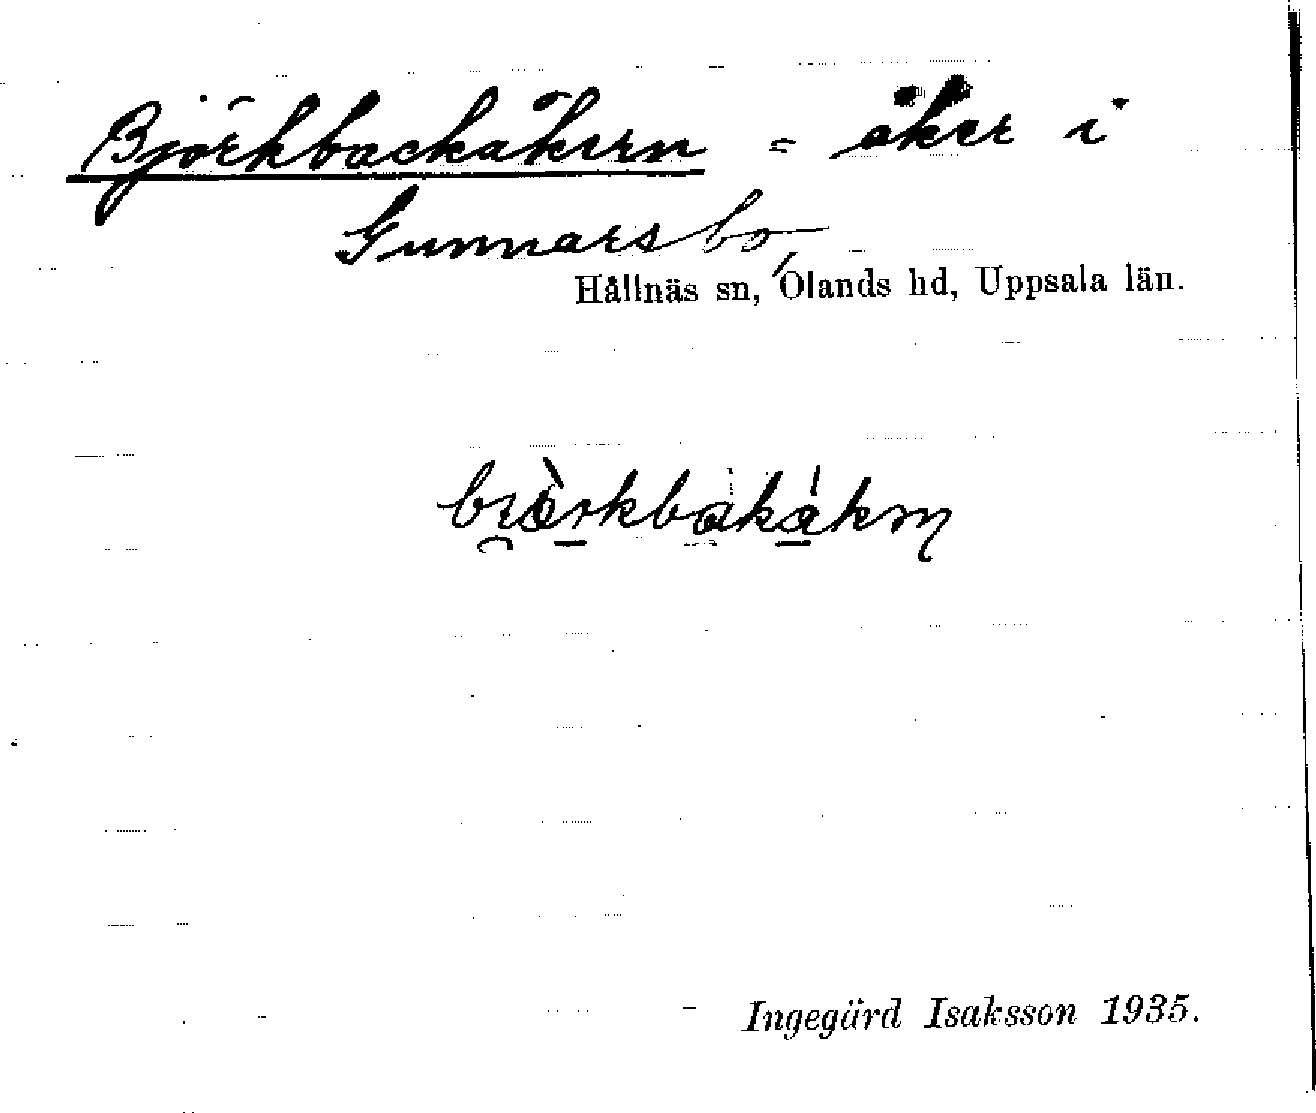 Björkbackåkern = åker i
Gunnarsbo,
Hållnäs sn, Olands hd, Uppsala län.
Ingegärd Isaksson 1935.